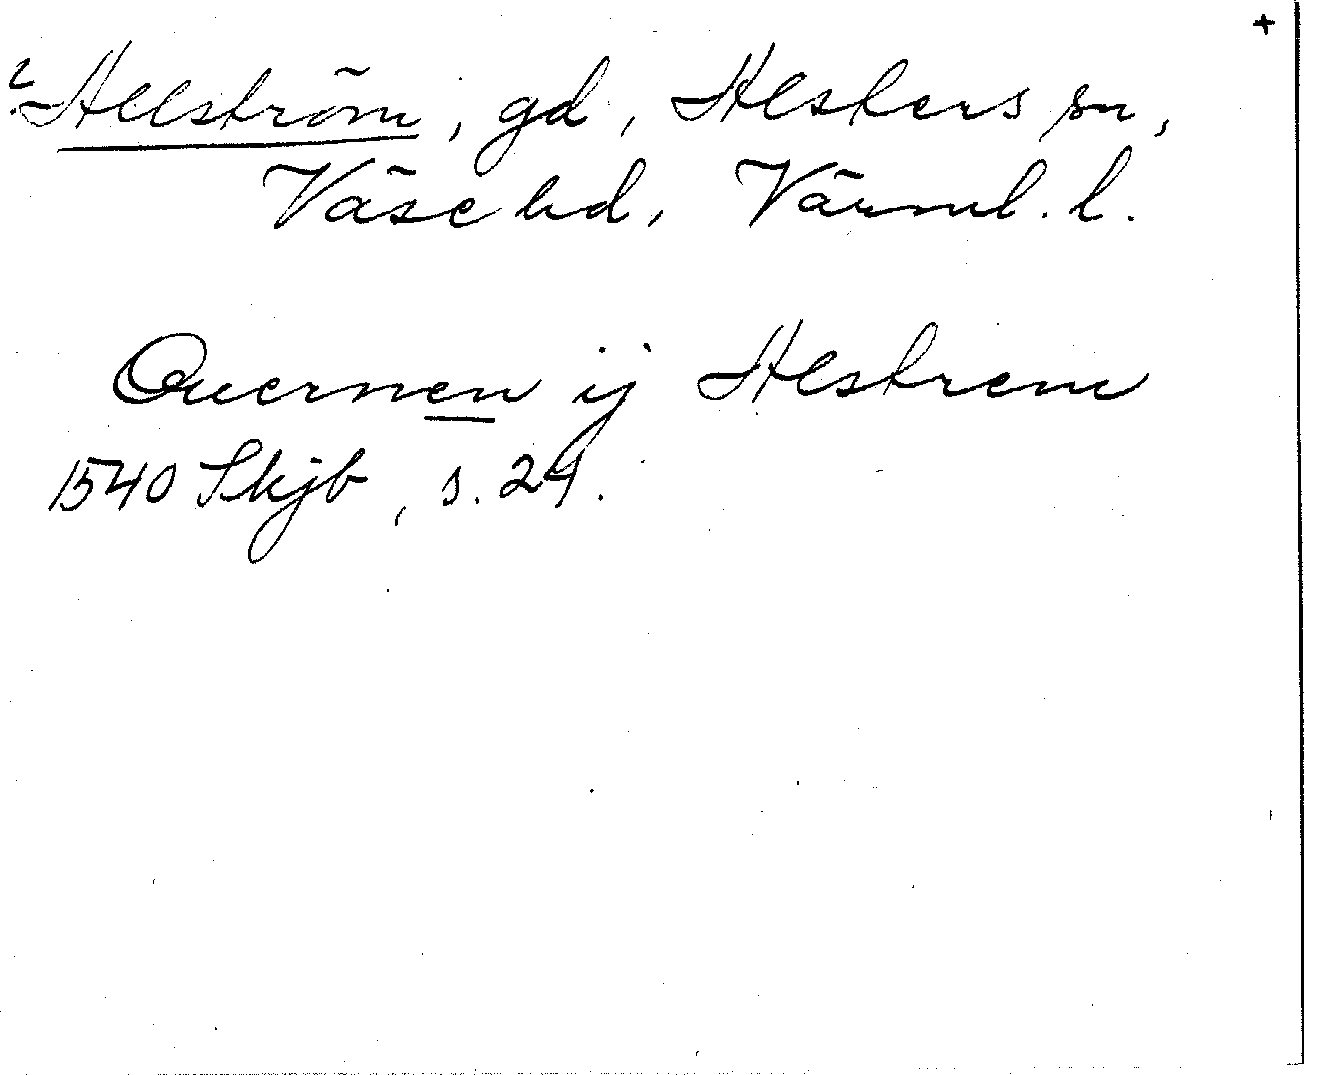 ? Allström, gd, Alsters sn,
Väse hd, Värml. l.
Quernen ij Alstrem
1540 Skjb, s. 24.